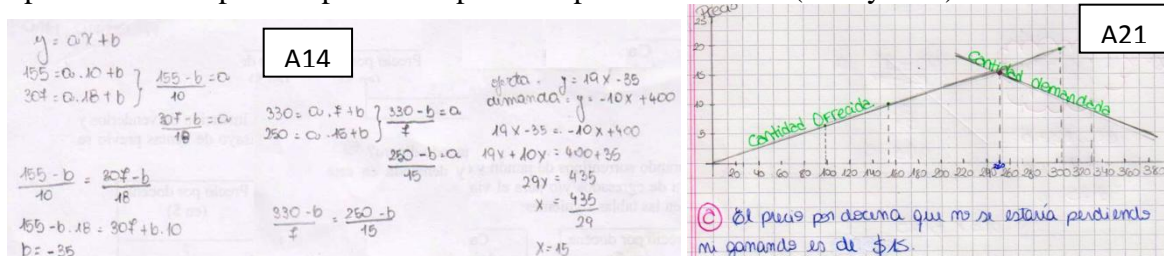 A14
y = ax+b
155 = a.10+b
307 = a.18+b
155-b = a
10
307-b = a
18
155-b = 307-b
10 18
155-b.18 = 307+b.10
b = -35
330 = a.7+b
250 = a.15+b
330-b = a
7
250-b = a
15
330-b = 250-b
7 15
oferta. y = 19x-35
demanda = y = -10x+400
19x-35 = -10x+400
19x+10x = 400+35
29x = 435
x = 435
29
x = 15
A21
Precio
20
15
10
5
Cantidad Ofrecida
Cantidad demandada
20 40 60 80 100 120 140 160 180 200 220 240 260 280 300 320 340 360 380
C El precio por docena que no se estaría perdiendo
ni ganando es de $15.